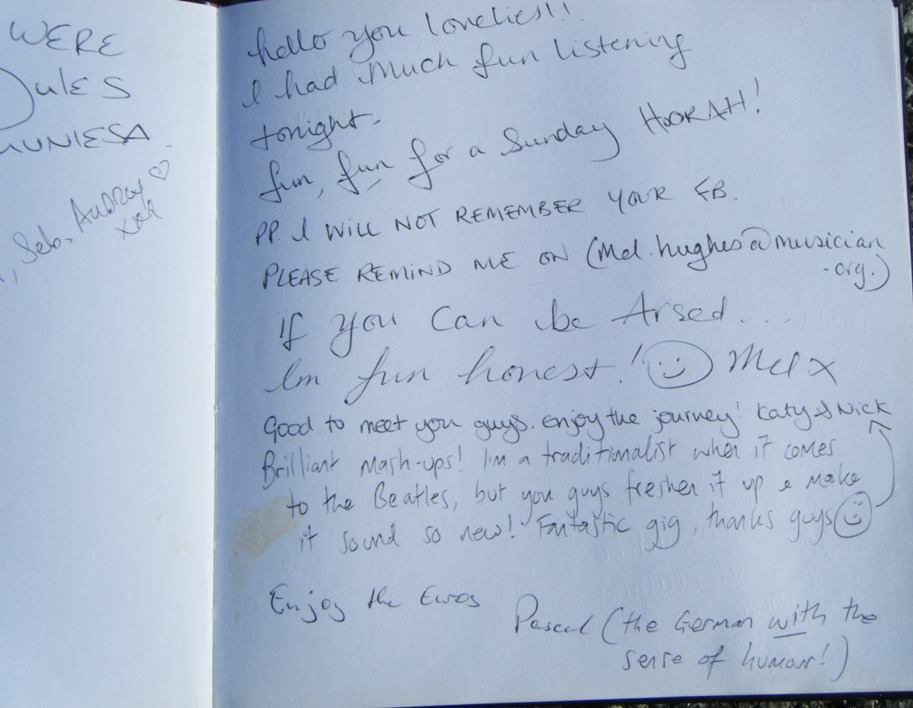 WERE
JULES
MUNIESA
, Seb, Audrey ♡
xxx
hello you lovelies!!
I had much fun listening
tonight.
fun, fun for a Sunday HOORAH!
PP. I WILL NOT REMEMBER YOUR FB.
PLEASE REMIND ME ON (Mel.hughes@musician
.org.)
If you can be Arsed...
Im fun honest! ☺ Mel x
Good to meet you guys. enjoy the journey! Katy & Nick
Brilliant mash-ups! I'm a traditionalist when it comes
to the Beatles, but you guys freshen it up & make
it sound so new! Fantastic gig, thanks guys ☺
Enjoy the Euros
Pascal (the German with the
sense of humour!)